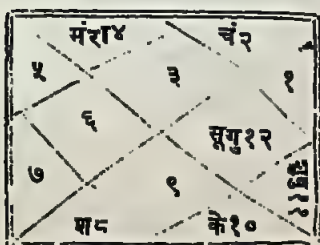 मंरा४ चं२
५ ३ १
६
सूगु१२
७ ९
श८ के१०